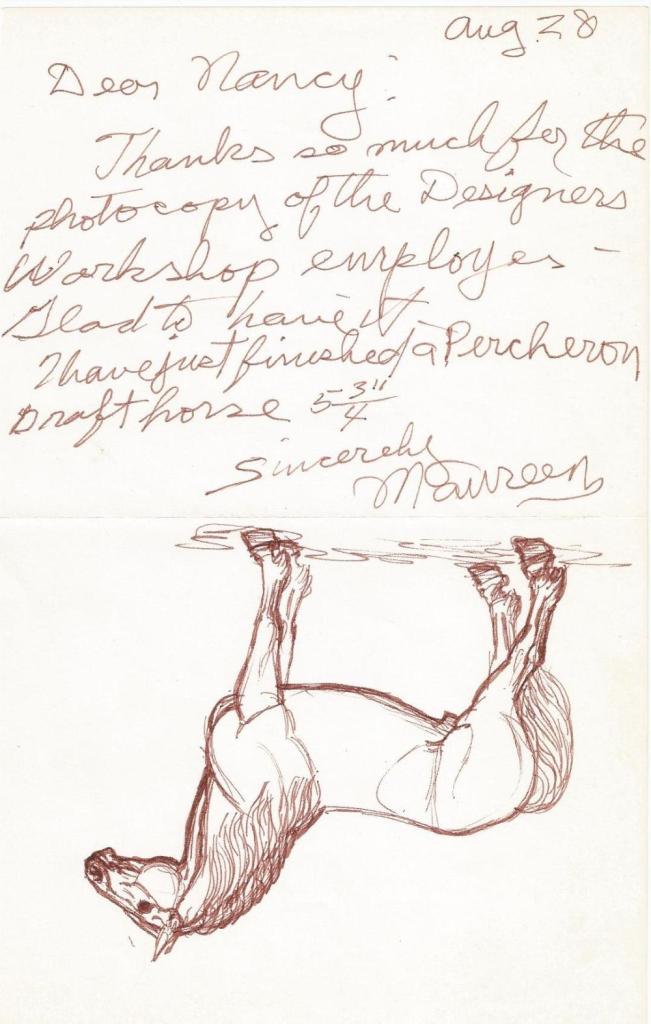 Aug 28
Dear Nancy:
Thanks so much for the
photocopy of the Designers
Workshop employes -
Glad to have it
I have just finished a Percheron
Draft horse 5 3/4"
Sincerely
Maureen